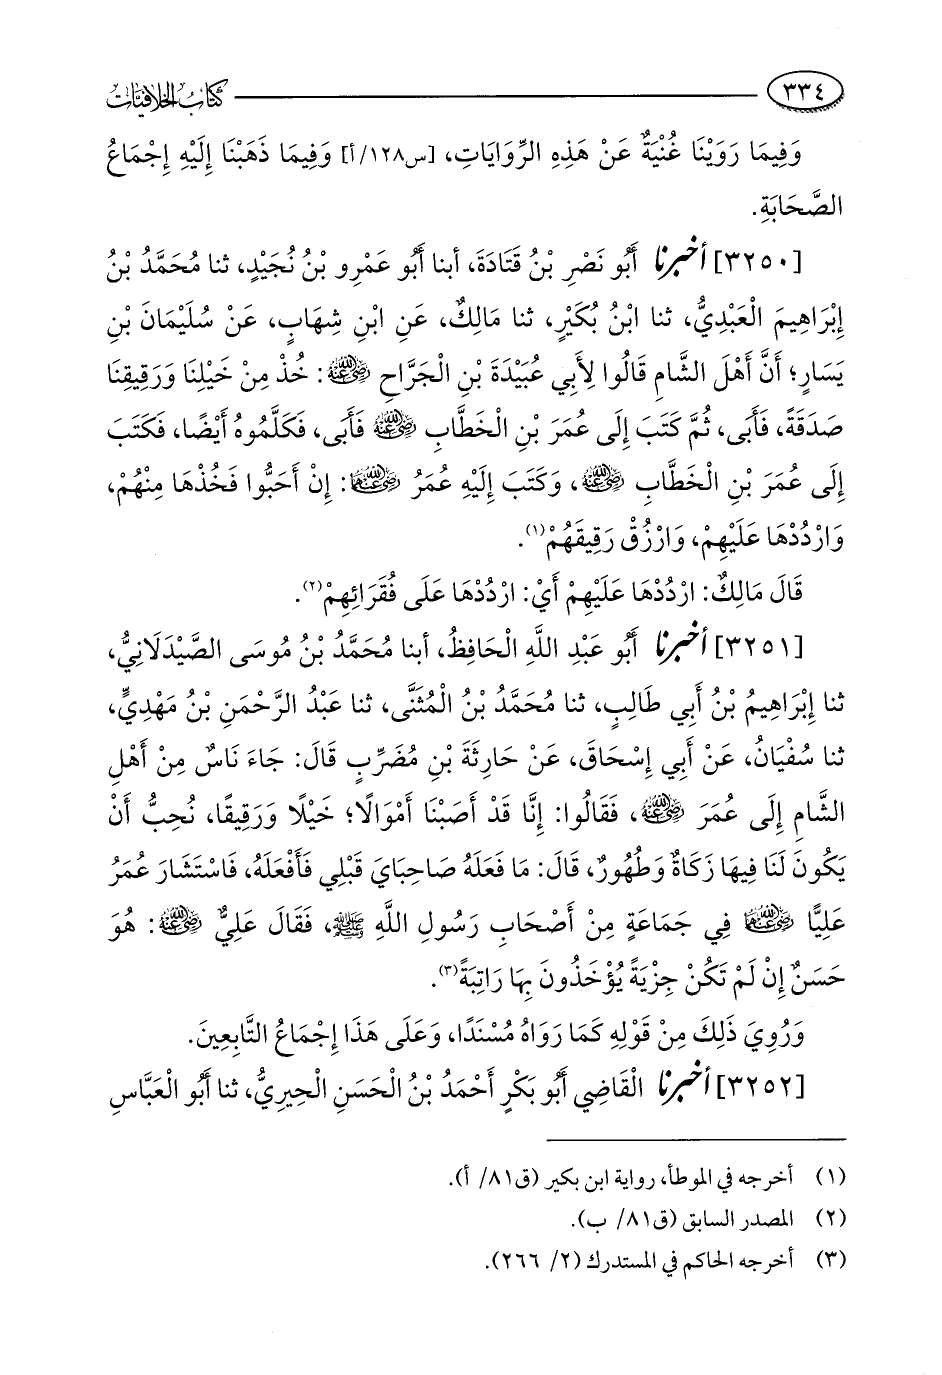 ٣٣٤ كتاب الخلافيات
وَفِيمَا رَوَيْنَا غُنْيَةٌ عَنْ هَذِهِ الرِّوَايَاتِ، [س١٢٨/أ] وَفِيمَا ذَهَبْنَا إِلَيْهِ إِجْمَاعُ
الصَّحَابَةِ.
[٣٢٥٠] أخبرنا أَبُو نَصْرِ بْنُ قَتَادَةَ، أبنا أَبُو عَمْرِو بْنُ نُجَيْدٍ، ثنا مُحَمَّدُ بْنُ
إِبْرَاهِيمَ الْعَبْدِيُّ، ثنا ابْنُ بُكَيْرٍ، ثنا مَالِكٌ، عَنِ ابْنِ شِهَابٍ، عَنْ سُلَيْمَانَ بْنِ
يَسَارٍ؛ أَنَّ أَهْلَ الشَّامِ قَالُوا لِأَبِي عُبَيْدَةَ بْنِ الْجَرَّاحِ رضي الله عنه: خُذْ مِنْ خَيْلِنَا وَرَقِيقِنَا
صَدَقَةً، فَأَبَى، ثُمَّ كَتَبَ إِلَى عُمَرَ بْنِ الْخَطَّابِ رضي الله عنه فَأَبَى، فَكَلَّمُوهُ أَيْضًا، فَكَتَبَ
إِلَى عُمَرَ بْنِ الْخَطَّابِ رضي الله عنه، وَكَتَبَ إِلَيْهِ عُمَرُ رضي الله عنه: إِنْ أَحَبُّوا فَخُذْهَا مِنْهُمْ،
وَارْدُدْهَا عَلَيْهِمْ، وَارْزُقْ رَقِيقَهُمْ(١).
قَالَ مَالِكٌ: ارْدُدْهَا عَلَيْهِمْ أَيْ: ارْدُدْهَا عَلَى فُقَرَائِهِمْ(٢).
[٣٢٥١] أخبرنا أَبُو عَبْدِ اللَّهِ الْحَافِظُ، أبنا مُحَمَّدُ بْنُ مُوسَى الصَّيْدَلَانِيُّ،
ثنا إِبْرَاهِيمُ بْنُ أَبِي طَالِبٍ، ثنا مُحَمَّدُ بْنُ الْمُثَنَّى، ثنا عَبْدُ الرَّحْمَنِ بْنُ مَهْدِيٍّ،
ثنا سُفْيَانُ، عَنْ أَبِي إِسْحَاقَ، عَنْ حَارِثَةَ بْنِ مُضَرِّبٍ قَالَ: جَاءَ نَاسٌ مِنْ أَهْلِ
الشَّامِ إِلَى عُمَرَ رضي الله عنه، فَقَالُوا: إِنَّا قَدْ أَصَبْنَا أَمْوَالًا؛ خَيْلًا وَرَقِيقًا، نُحِبُّ أَنْ
يَكُونَ لَنَا فِيهَا زَكَاةٌ وَطُهُورٌ، قَالَ: مَا فَعَلَهُ صَاحِبَايَ قَبْلِي فَأَفْعَلَهُ، فَاسْتَشَارَ عُمَرُ
عَلِيًّا رضي الله عنهما فِي جَمَاعَةٍ مِنْ أَصْحَابِ رَسُولِ اللَّهِ ﷺ، فَقَالَ عَلِيٌّ رضي الله عنه: هُوَ
حَسَنٌ إِنْ لَمْ تَكُنْ جِزْيَةً يُؤْخَذُونَ بِهَا رَاتِبَةً(٣).
وَرُوِيَ ذَلِكَ مِنْ قَوْلِهِ كَمَا رَوَاهُ مُسْنَدًا، وَعَلَى هَذَا إِجْمَاعُ التَّابِعِينَ.
[٣٢٥٢] أخبرنا الْقَاضِي أَبُو بَكْرٍ أَحْمَدُ بْنُ الْحَسَنِ الْحِيرِيُّ، ثنا أَبُو الْعَبَّاسِ
(١) أخرجه في الموطأ، رواية ابن بكير (ق٨١/ أ).
(٢) المصدر السابق (ق٨١/ ب).
(٣) أخرجه الحاكم في المستدرك (٢/ ٢٦٦).